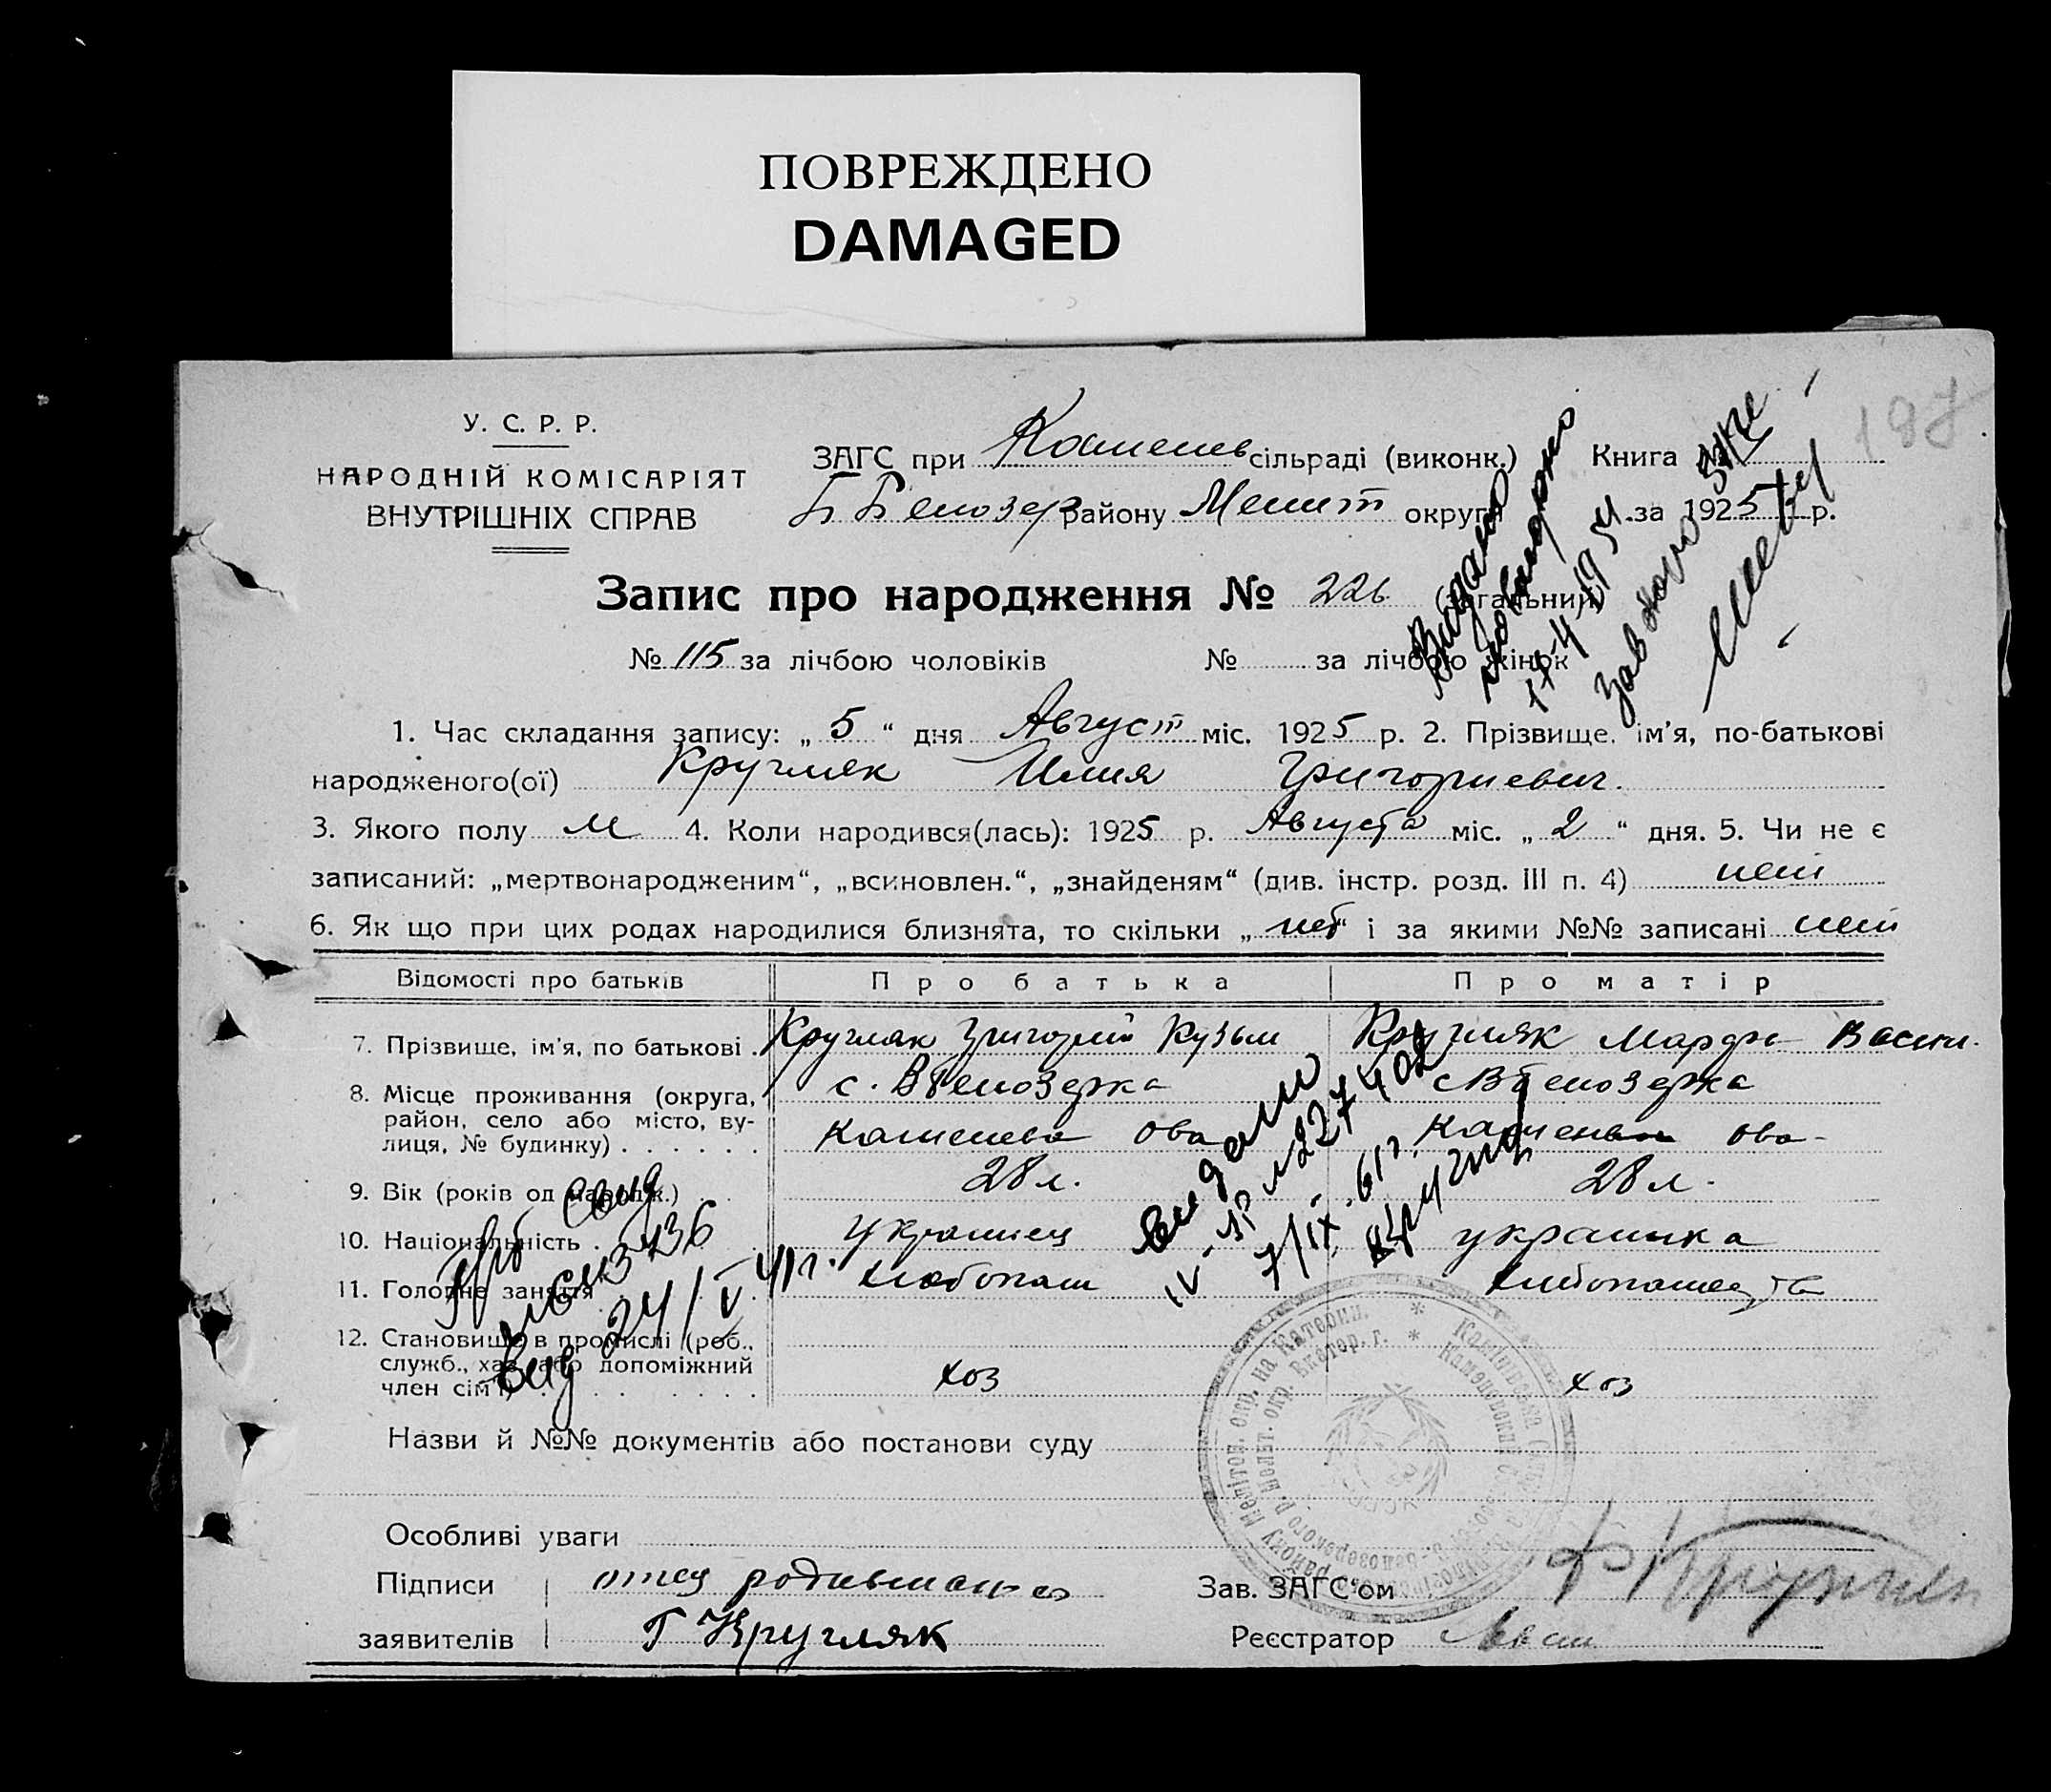 ПОВРЕЖДЕНО
DAMAGED
У. С. Р. Р.
НАРОДНІЙ КОМІСАРІЯТ
ВНУТРІШНІХ СПРАВ
ЗАГС при сільраді (виконк.) Книга №
Б Белозер району Мелит округи за 1925 р.
Запис про народження № 226 (загальний)
№ 115 за лічбою чоловіків № за лічбою жінок
1. Час складання запису: „ 5 “ дня Август міс. 1925 р. 2. Прізвище, ім'я, по-батькові
народженого(ої) Кругляк Илия Григориевич.
3. Якого полу м 4. Коли народився(лась): 1925 р. Августа міс. „ 2 “ дня. 5. Чи не є
записаний: „мертвонародженим“, „всиновлен.“, „знайденям“ (див. інстр. розд. III п. 4) нет
6. Як що при цих родах народилися близнята, то скільки „ нет “ і за якими №№ записані нет
Відомості про батьків Про батька Про матір
7. Прізвище, ім'я, по батькові . Кругляк Григорий Кузьм Кругляк Марфа Васил.
8. Місце проживання (округа, с. ВБелозерка с ВБелозерка
район, село або місто, ву-
лиця, № будинку) . . . . . .
9. Вік (років од народж.) 28 л. 28 л.
10. Національність . украинец украинка
11. Головне заняття
12. Становище в промислі (роб.,
служб., хаз. або допоміжний хоз хоз
член сім'ї)
Назви й №№ документів або постанови суду
Особливі уваги
Підписи отец родившагося Зав. ЗАГС'ом
заявителів Г Кругляк Реєстратор
Видано
17-4-1954
видано
7/IX-61 г.
24/V 41 г.